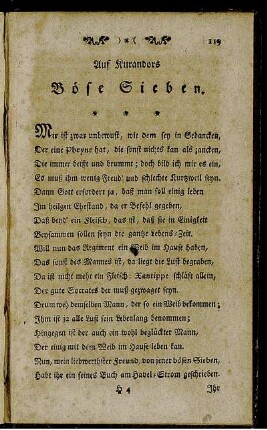 119
Auf Kurandors
Böse Sieben.
* * *
Mir ist zwar unbewust, wie dem sey in Gedancken,
Der eine Phryne hat, die sonst nichts kan als zancken,
Die immer beisst und brummt; doch bild ich mir es ein,
Es muß ihm wenig Freud' und schlechte Kurtzweil seyn.
Dann Gott erfordert ja, daß man soll einig leben
Im heilgen Ehestand, da er Befehl gegeben,
Daß beyd' ein Fleisch, das ist, daß sie in Einigkeit
Beysammen sollen seyn die gantze Lebens-Zeit.
Will nun das Regiment ein Weib im Hause haben,
Das sonst des Mannes ist, da liegt die Lust begraben,
Da ist nicht mehr ein Fleisch. Xantippe schläft allein,
Der gute Socrates der muß gezwaget seyn.
Drum wo demselben Mann, der so ein Weib bekommen;
Ihm ist ja alle Lust sein Lebenlang benommen;
Hingegen ist der auch ein wohl beglückter Mann,
Der einig mit dem Weib im Hause leben kan.
Nun, mein liebwerthster Freund, von jener bösen Sieben,
Habt ihr ein feines Buch am Havel-Strom geschrieben.
H 4 Ihr